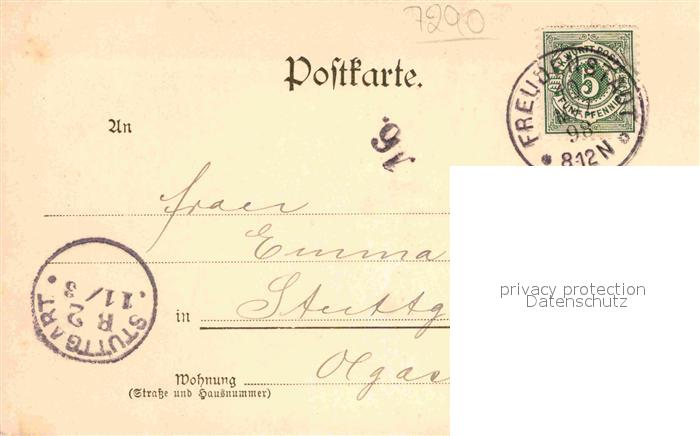 7290
Postkarte.
K. WÜRTT. POST
5
FÜNF PFENNIG
FREUDENSTADT
98
8-12 N
An
16.
Frau
Emma
privacy protection
Datenschutz
in Stuttg
STUTTGART.
R
2
11/3
Olgas
Wohnung
(Straße und Hausnummer)